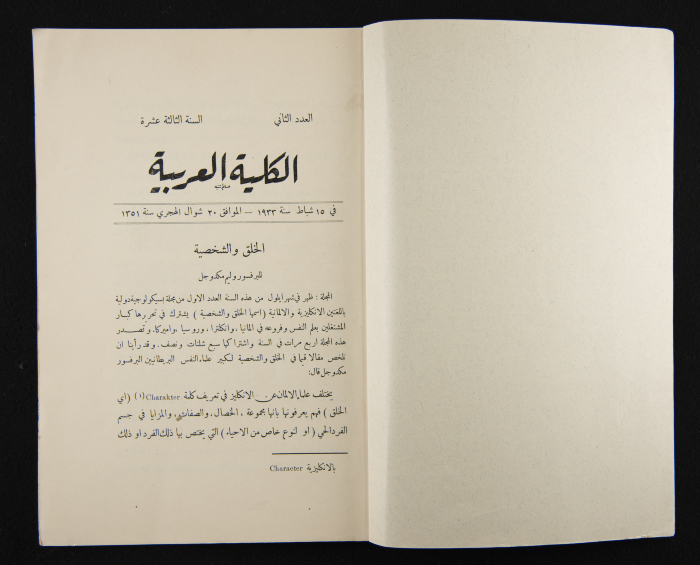 العدد الثاني السنة الثالثة عشرة
الكلية العربية
في ١٥ شباط سنة ١٩٣٣ — الموافق ٢٠ شوال الهجري سنة ١٣٥١
الخلق والشخصية
للبرفسور وليم مكدوجل
المجلة : ظهر في شهر ايلول من هذه السنة العدد الاول من مجلة بسيكولوجية دولية
باللغتين الانكليزية والالمانية ( اسمها الخلق والشخصية ) يشترك في تحريرها كبار
المشتغلين بعلم النفس وفروعه في المانيا ، وانكلترا ، وروسيا ، واميركا. وتصدر
هذه المجلة اربع مرات في السنة واشتراكها سبع شلنات ونصف. وقد رأينا ان
نلخص مقالا قيما في الخلق والشخصية لكبير علماء النفس البريطانيين البرفسور
مكدوجل قال:
يختلف علماء الالمان عن الانكليز في تعريف كلمة Charakter (١) (اي
الخلق ) فهم يعرفونها بانها مجموعة ، الخصال ، والصفات ، والمزايا في جسم
الفرد الحي ( او لنوع خاص من الاحياء ) التي يختص بها ذلك الفرد او ذلك
بالانكليزية Character